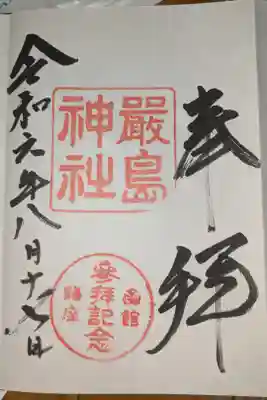 奉拝
嚴島
神社
函館
參拝記念
鎮座
令和六年八月十七日